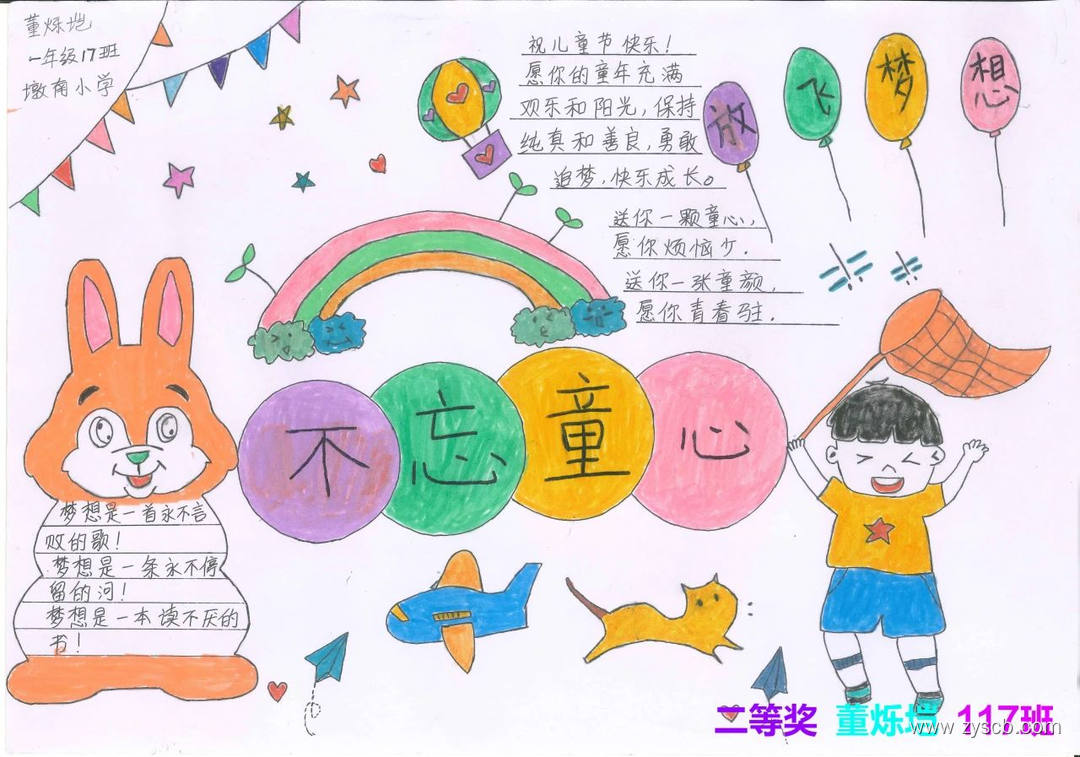 董烁垲
一年级17班
墩南小学
祝儿童节快乐！
愿你的童年充满
欢乐和阳光，保持
纯真和善良，勇敢
追梦，快乐成长。
放飞梦想
送你一颗童心，
愿你烦恼少．
送你一张童颜，
愿你青春驻．
不忘童心
梦想是一首永不言
败的歌！
梦想是一条永不停
留的河！
梦想是一本读不厌的
书！
二等奖 董烁垲 117班
www.zyscb.com